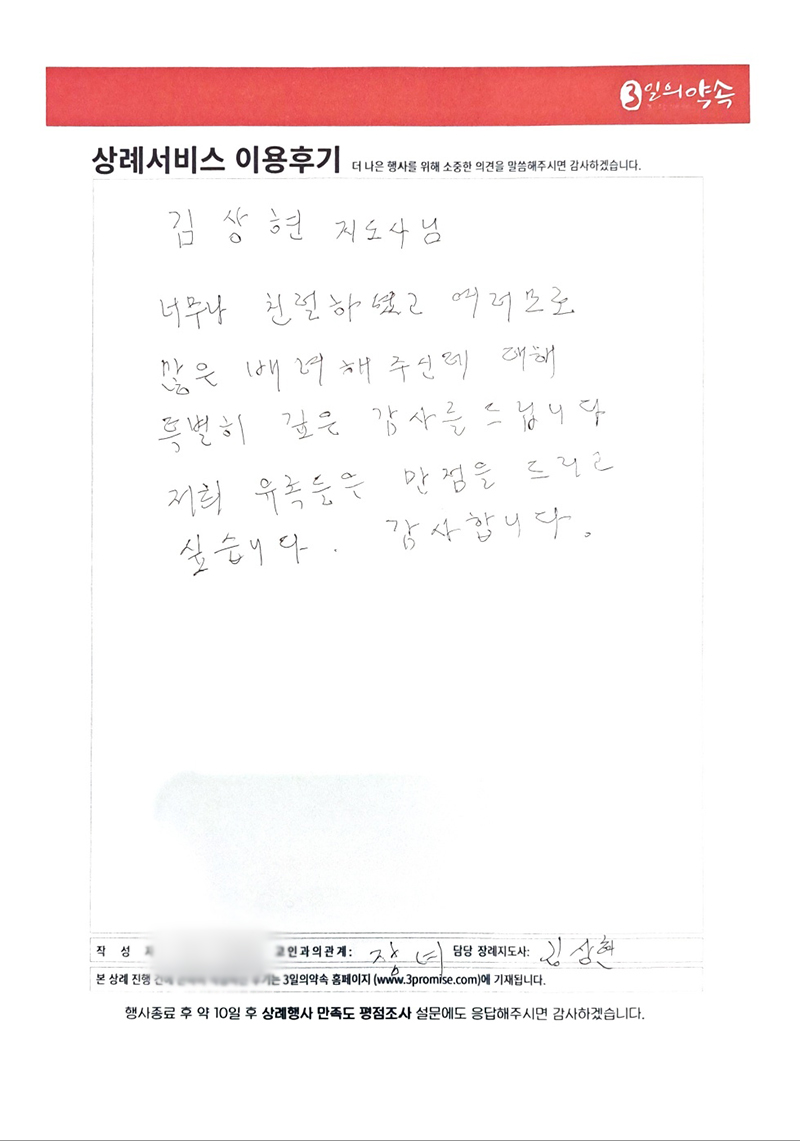 3일의약속
상례서비스 이용후기 더 나은 행사를 위해 소중한 의견을 말씀해주시면 감사하겠습니다.
김상현 지도사님
너무나 친절하였고 여러모로
많은 배려해 주신데 대해
특별히 깊은 감사를 드립니다
저희 유족들은 만점을 드리고
싶습니다. 감사합니다.
작 성 고인과의관계: 장녀 담당 장례지도사: 김상현
본 상례 진행 는 3일의약속 홈페이지 (www.3promise.com)에 기재됩니다.
행사종료 후 약 10일 후 상례행사 만족도 평점조사 설문에도 응답해주시면 감사하겠습니다.